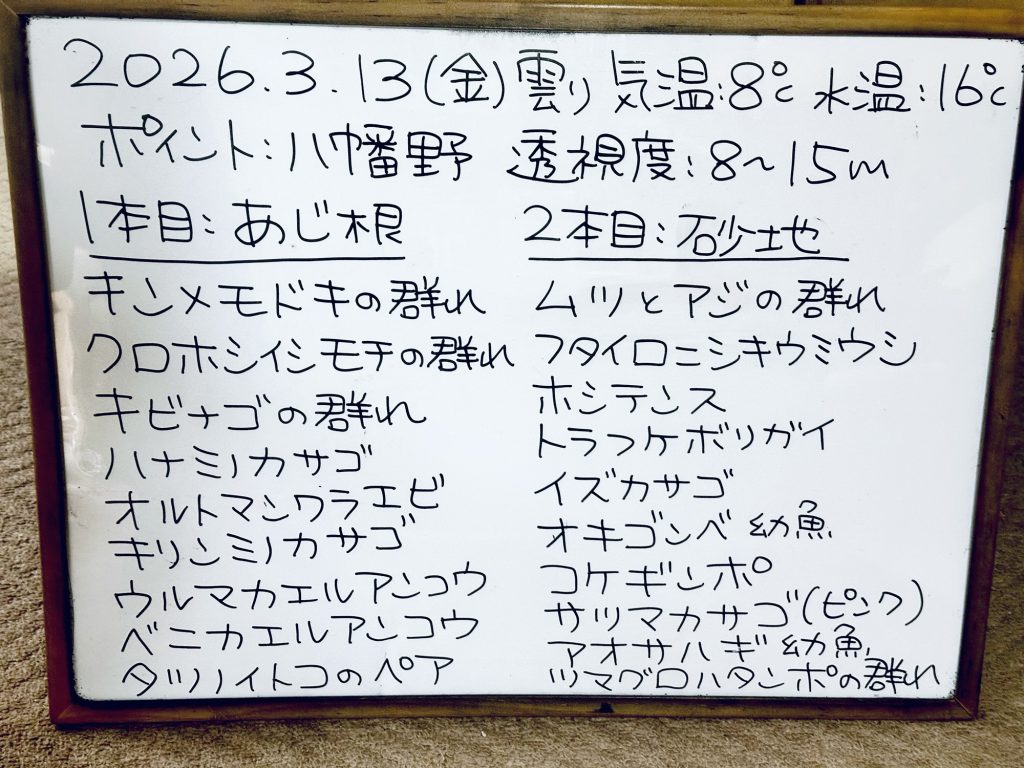 2026.3.13(金)雲り 気温:8℃ 水温:16℃
ポイント:八幡野 透視度:8~15m
1本目:あじ根
キンメモドキの群れ
クロホシイシモチの群れ
キビナゴの群れ
ハナミノカサゴ
オルトマンワラエビ
キリンミノカサゴ
ウルマカエルアンコウ
ベニカエルアンコウ
タツノイトコのペア
2本目:砂地
ムツとアジの群れ
フタイロニシキウミウシ
ホシテンス
トラフケボリガイ
イズカサゴ
オキゴンベ幼魚
コケギンポ
サツマカサゴ(ピンク)
アオサハギ幼魚
ツマグロハタンポの群れ